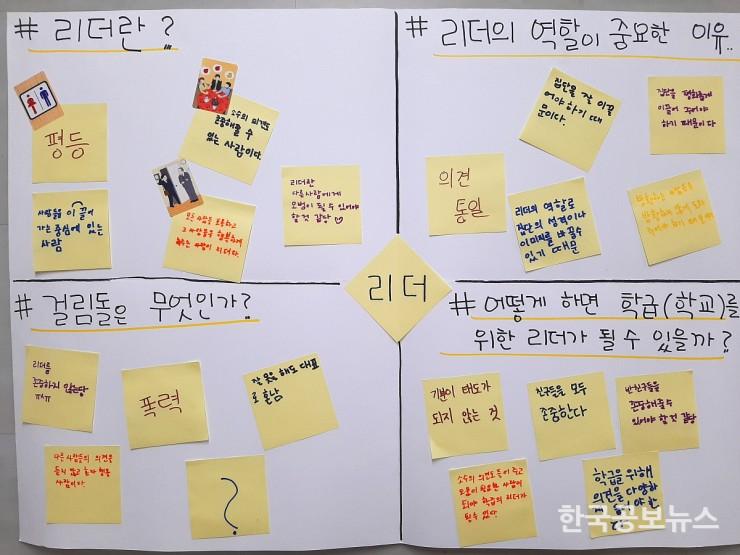 # 리더란?
평등
소수의 의견도
존중해줄 수
있는 사람이다.
사람들을 이끌어
가는 중심에 있는
사람
모든 사람들을 포용하고
그 사람들을 행복하게
사람이 리더다.
리더란
다른사람에게
모범이 될 수 있어야
할것 같당
# 리더의 역할이 중요한 이유..
집단을 잘 이끌
어야 하기 때
문이다.
집단을 평화롭게
이끌어 주어야
하기 때문이다
의견
통일
리더의 역할로
집단의 성격이나
이미지를 바꿀수
있기 때문
리더
# 걸림돌은 무엇인가?
리더를
존중하지 않는당
ㅠㅅㅠ
폭력
잘 못 해도 대표
로 혼남
다른 사람들의 의견을
듣지 않고
사람이다.
?
# 어떻게 하면 학급(학교)를
위한 리더가 될 수 있을까?
기분이 태도가
되지 않는 것
친구들을 모두
존중한다
반친구들을
존중해줄수
있어야 할것 같당
소수의 의견도 들어 주고
도움이 필요한 사람이
되어야 학급의 리더가
될수 있다.
학급을 위해
의견을 다양하
한국공보뉴스